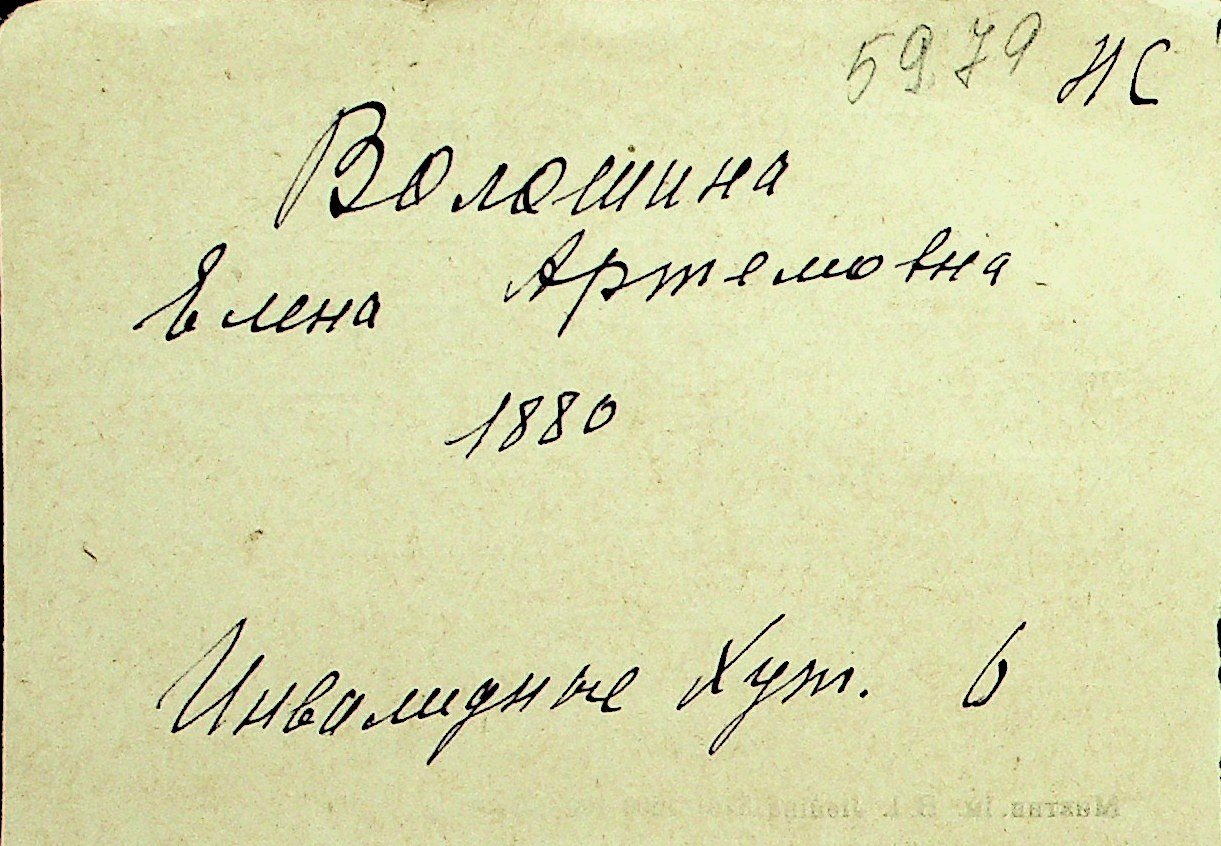 5979 НС
Волошина
Елена Артемовна
1880
Инвалидные Хут. 6